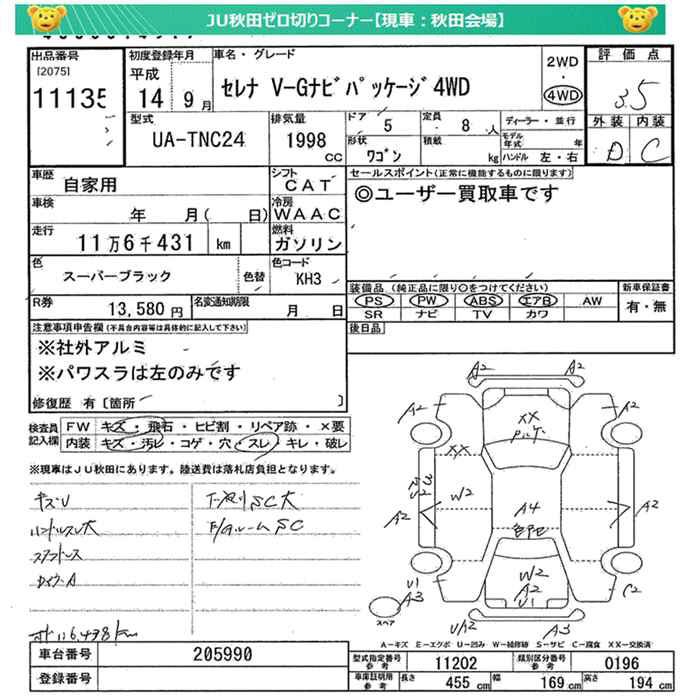 JU秋田ゼロ切りコーナー【現車：秋田会場】
出品番号 初度登録年月 車名・グレード 2WD・4WD 評価点
[2075] 11135 平成14年9月 セレナ V-Gナビパッケージ4WD 3.5
型式 排気量 ドア 5 定員 8人 ディーラー・並行 外装 内装
UA-TNC24 1998cc 形状 ワゴン 積載 kg モデル年式 年 ハンドル 左・右 D C
車歴 自家用 シフト CAT セールスポイント(正常に機能するものに限ります)
車検 年 月( 日) 冷房 WAAC ◎ユーザー買取車です
走行 11万6千431 km 燃料 ガソリン
色 スーパーブラック 色替 色コード KH3
装備品 (純正品に限り○をつけてください) 新車保証書
R券 13,580円 名変通知期限 月 日 PS PW ABS エアB AW 有・無
SR ナビ TV カワ
注意事項申告欄(不具合内容等は具体的に記入して下さい) 後日品
※社外アルミ
※パワスラは左のみです
修復歴 有〔箇所 〕
検査員記入欄 FW キズ・飛石・ヒビ割・リペア跡・×要
内装 キズ・汚レ・コゲ・穴・スレ・キレ・破レ
※現車はJU秋田にあります。陸送費は落札店負担となります。
キズU
ハンドルスレ大
タイヤ-A
下廻りSC大
F/Aルーム SC
A2 A2
A2 A2
XX
XX
W2
A2 A4 A2
W2
U1 A3 A2 U1 C2
スペア U/A2 A3
A-キズ E-エクボ U-凹み W-補修跡 S-サビ C-腐食 XX-交換済
車台番号 205990 型式指定番号 参考 11202 類別区分番号 参考 0196
登録番号 車庫証明用 参考 長さ 455cm 幅 169cm 高さ 194cm